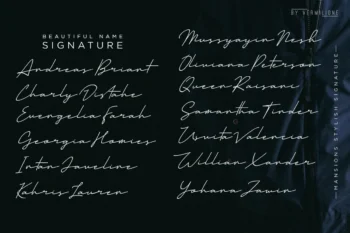 BY VERMILIONE
BEAUTIFUL NAME
SIGNATURE
Andreas Briant
Charly Distake
Evengelia Farah
Georgia Homies
Intan Javeline
Kahris Lauren
Mussyayin Nesh
Oliviana Peterson
Queen Raisani
Samantha Tinder
Usvita Valencia
Willian Xander
Yohana Zawin
MANSIONS STYLISH SIGNATURE